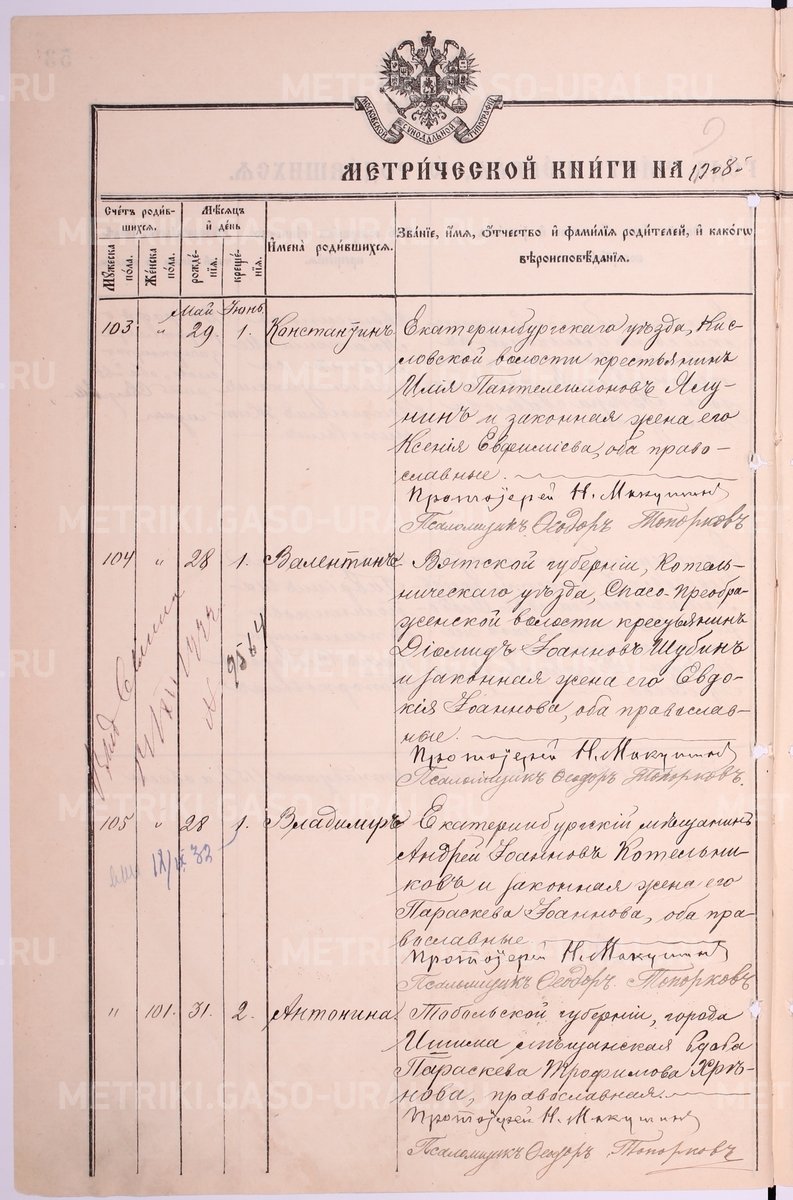 МОСКОВСКОЙ СѴНОДАЛЬНОЙ ТИПОГРАФІИ
МЕТРИ́ЧЕСКОЙ КНИ́ГИ НА 1908
Сче́тъ роди́в-
шихся.
Мѣ́сяцъ
и҆ де́нь
И҆мена̀ роди́вшихся.
Зва́нїе, и҆́мя, ѻ҆́тчество и҆ фами́лїѧ роди́телей, и҆ како́гѡ
вѣроисповѣ́данїѧ.
Му́жеска по́ла.
Же́нска по́ла.
рожде́нїѧ.
креще́нїѧ.
Май Іюнь
103 " 29 1. Константинъ
Екатеринбургскаго уѣзда, Кис-
ловской волости крестьянинъ
Илія Пантелеимоновъ Ялу-
нинъ и законная жена его
Ксенія Евфиміева, оба право-
славные.
Протоіерей Н. Макушинъ
Псаломщикъ Ѳеодоръ Топорковъ
104 " 28 1. Валентинъ
Вятской губерніи, Котель-
ническаго уѣзда, Спасо-Преобра-
женской волости крестьянинъ
Діомидъ Іоанновъ Шубинъ
и законная жена его Евдо-
кія Іоаннова, оба православ-
ные.
Протоіерей Н. Макушинъ
Псаломщикъ Ѳеодоръ Топорковъ.
9564
105 " 28 1. Владиміръ
Екатеринбургскій мѣщанинъ
Андрей Іоанновъ Котельни-
ковъ и законная жена его
Параскева Іоаннова, оба пра-
вославные
Протоіерей Н. Макушинъ
Псаломщикъ Ѳеодоръ Топорковъ
IX 32
" 101. 31. 2. Антонина
Тобольской губерніи, города
Ишима мѣщанская вдова
Параскева Трофимова Хрѣ-
нова, православная.
Протоіерей Н. Макушинъ
Псаломщикъ Ѳеодоръ Топорковъ
METRIKI.GASO-URAL.RU